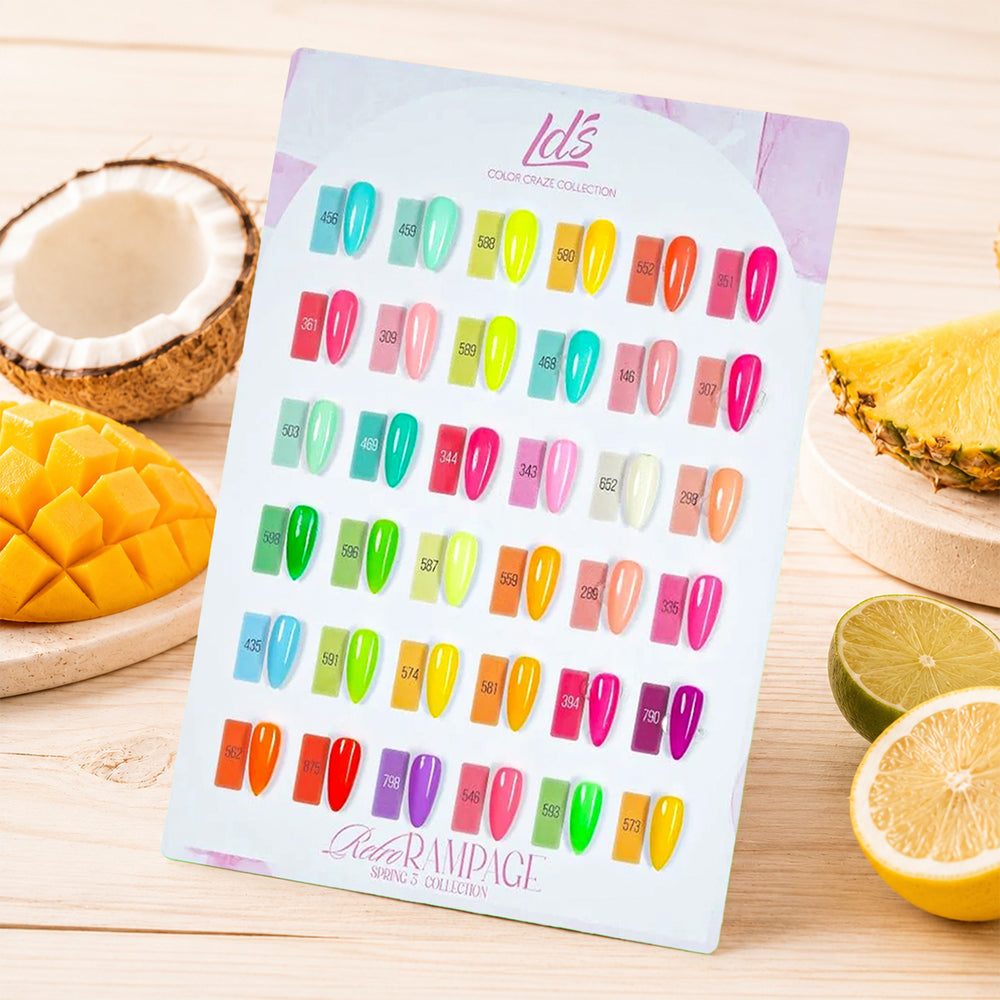 Ld's
COLOR CRAZE COLLECTION
456 459 588 580 552 351
361 309 589 468 146 307
503 469 344 343 652 298
598 596 587 559 289 335
435 591 574 581 394 790
562 875 798 546 593 573
Retro RAMPAGE
SPRING 3 COLLECTION